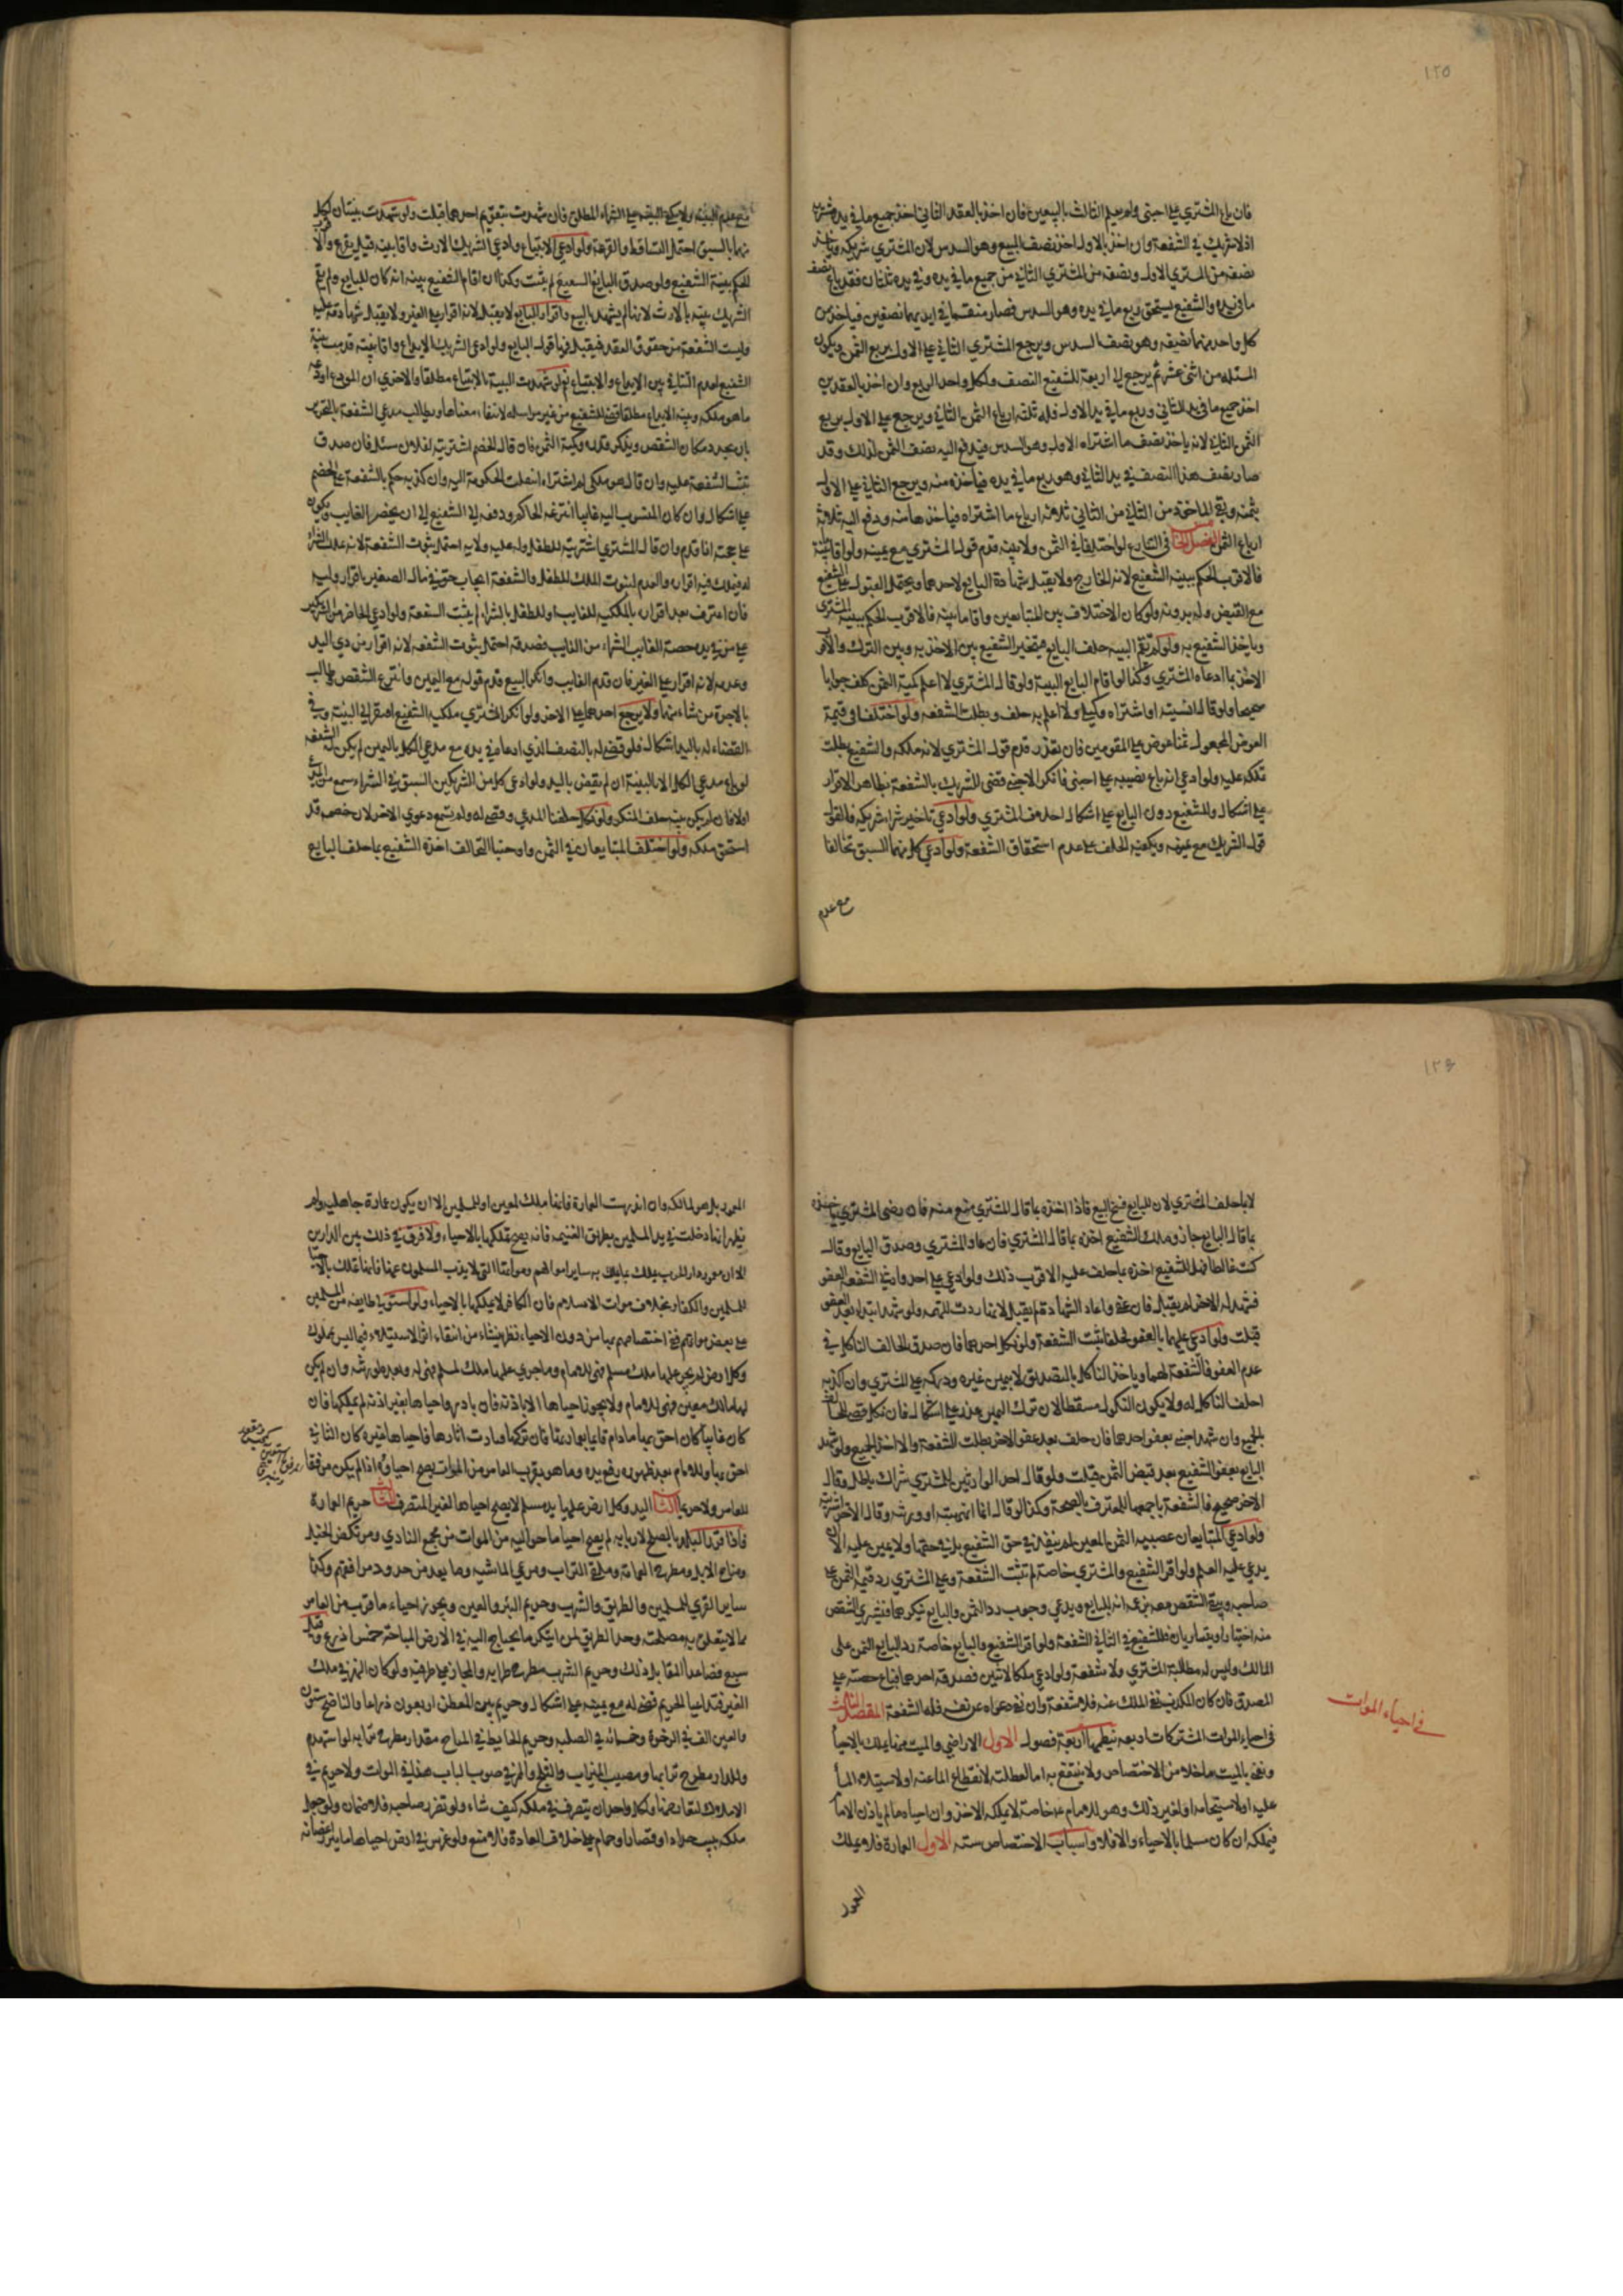 ١٢٥
فان باع المشتري على اجنبي ولم يعلم الثالث بالبيعين فان اخذ بالعقد الثاني اخذ جميع ما في يد مشتريه
اذ لا شريك في الشفعة وان اخذ بالاول اخذ نصف المبيع وهو السدس لان المشتري شريكه وياخذ
نصفه من المشتري الاول ونصفه من المشتري الثاني من جميع ما في يده وفي يده ثلثان فقد باع نصف
ما في يده والشفيع يستحق ربع ما في يده وهو السدس فصار منقسما في ايديهما نصفين فياخذ من
كل واحد منهما نصيفه وهو نصف السدس ويرجع المشتري الثاني على الاول بربع الثمن ويكون
المسئله من اثنى عشر ثم يرجع الى اربعة للشفيع النصف ولكل واحد الربع وان اخذ بالعقدين
اخذ جميع ما في يد الثاني وربع ما في يد الاول فله ثلثة ارباع الثمن الثاني ويرجع على الاول بربع
الثمن الثاني لانه ياخذ نصف ما اشتراه الاول وهو السدس فيدفع اليه نصف الثمن لذلك وقد
صار نصف هذا النصف في يد الثاني وهو ربع ما في يده فياخذه منه ويرجع الثاني على الاول
بثمنه وبقي الماخوذ من الثاني ثلاثة ارباع ما اشتراه فياخذها منه ودفع اليه ثلاثة
ارباع الثمن الفصل في التنازع لو اختلفا في الثمن ولا بينه قدم قول المشتري مع يمينه ولو اقاما بينة
فالاقرب الحكم ببينه الشفيع لانه الخارج ولا يقبل شهادة البايع لاحدهما ويحتمل القبول على الشفيع
مع القبض وله بدونه ولو كان الاختلاف بين المتبايعين واقاما بينه فالاقرب الحكم ببينة المشتري
وياخذ الشفيع به ولو لم يقم البينه حلف البايع فيتخير الشفيع بين الاخذ به وبين الترك والاقرب
الاخذ بما ادعاه المشتري وكذا لو اقام البايع البينة ولو قال المشتري لا اعلم كمية الثمن كلف جوابا
صحيحا ولو قال انسيته او اشتراه وكيلي ولا اعلم به حلف وبطلت الشفعه ولو اختلفا في قيمة
العوض المجعول ثمنا عرض على المقومين فان تعذر قدم قول المشتري لانه ملكه والشفيع يطلب
تملكه عليه ولو ادعي انه باع نصيبه على اجنبي فانكر الاجنبي قضى للشريك بالشفعة بظاهر الاقرار
على اشكال وللشفيع دون البايع على اشكال احلاف المشتري ولو ادعي تاخير شراء شريكه فالقول
قول الشريك مع يمينه ويكفيه الحلف على عدم استحقاق الشفعة ولو ادعي كل منهما السبق تحالفا
مع عدم
مع عدم البينه ولا يكفي البينه على الشراء المطلق فان شهدت بتقديم احدهما قبلت ولو شهدت بينتان لكل
منهما بالسبق احتمل التساقط والقرعة ولو ادعي الابتياع وادعي الشريك الارث واقاما بينه قيل يقرع والاقرب
الحكم ببينة الشفيع ولو صدق البايع الشفيع لم يثبت وكذا ان اقام الشفيع بينه انه كان للبايع ولم يقم
الشريك بينه بالارث لانها لم يشهد بالبيع واقرار البايع لا يقبل لانه اقرار على الغير ولا يقبل شهادته عليه
وليست الشفعة من حقوق العقد فيقبل فيها قول البايع ولو ادعي الشريك الايداع واقاما بينه قدمت بينة
الشفيع لعدم التنافي بين الايداع والابتياع نعم لو شهدت البينة بالابتياع مطلقا والاخري ان المودع اودعه
ما هو ملكه وبينه الايداع مطلقا قضى للشفيع من غير مراسله لانتفاء معناها ويطالب مدعي الشفعة بالتحرير
بان يحدد مكان الشقص ويذكر قدره وكمية الثمن فان قال الخصم اشتريته لفلان سئل فان صدق
ثبتت الشفعة عليه وان قال هو ملكي لم اشتره انتقلت الحكومة اليه وان كذبه حكم بالشفعة على الخصم
على اشكال وان كان المنسوب اليه غايبا انتزعه الحاكم ودفعه الى الشفيع الى ان يحضر الغايب ويكون
على حجته اذا قدم وان قال المشتري اشتريته للطفل وله عليه ولايه احتمل ثبوت الشفعة لانه يملك الشراء
له فيملك فيه اقراره والعدم لثبوت الملك للطفل والشفعة ايجاب حق في مال الصغير باقرار وليه
فان اعترف بعد اقراره بالملكية للغايب او للطفل بالشراء لم يثبت الشفعة ولو ادعي الحاضر من الشريكين
على من في يده حصة الغايب الشراء من الغايب فصدقه احتمل ثبوت الشفعه لانه اقرار من ذي اليد
وعدمه لانه اقرار على الغير فان قدم الغايب وانكر البيع قدم قوله مع اليمين وانتزع الشقص وطالب
بالاجرة من شاء منهما ولا يرجع احدهما على الاخر ولو انكر المشتري ملكية الشفيع افتقر الى البينة وفي
القضاء له باليد اشكال فلو قضي له بالنصف الذي ادعاه في يده مع مدعي الكل باليمين لم يكن له الشفعه
لو باع مدعي الكل الا بالبينة ان لم نقض باليد ولو ادعى كل من الشريكين السبق في الشراء سمع من المدعي
اولا فان لم يكن بينه حلف المنكر ولو نكل حلفنا المدعي وقضى له ولم تسمع دعوي الاخر لان خصمه قد
استحق ملكه ولو اختلف المتبايعان في الثمن واوجبنا التحالف اخذه الشفيع بما حلف البايع
١٢٦
لا بما حلف المشتري لان للبايع فسخ البيع فاذا اخذه بما قال المشتري منع منه فان رضى المشتري ياخذه
بما قال البايع جاز وملك الشفيع اخذه بما قال المشتري فان عاد المشتري وصدق البايع وقال
كنت غالطا فهل للشفيع اخذه بما حلف عليه الاقرب ذلك ولو ادعي على احد وارثي الشفعه العفو
فشهد له الاخر لم يقبل فان عفى واعاد الشهادة لم يقبل لانها ردت للتهمه ولو شهد ابتداء بعد العفو
قبلت ولو ادعي عليهما بالعفو فحلفا ثبت الشفعة ولو نكل احدهما فان صدق الحالف الناكل في
عدم العفو فالشفعة لهما وياخذ الناكل بالتصديق لا بيمين غيره ودركه على المشتري وان كذبه
احلف الناكل له ولا يكون النكول مسقطا لان ترك اليمين عذر على اشكال فان نكل قضى للحالف
بالجميع وان شهد اجنبي بعفو احدهما فان حلف بعد عفو الاخر بطلت الشفعة والا اخذ الجميع ولو شهد
البايع بعفو الشفيع بعد قبض الثمن قبلت ولو قال احد الوارثين للمشتري شراك باطل وقال
الاخر صحيح فالشفعة باجمعها للمعترف بالصحة وكذا لو قال انما اتهبته او ورثه وقال الاخر اشتريته
ولو ادعي المتبايعان غصبيه الثمن المعين لم ينفذ في حق الشفيع بل في حقهما ولا يمين عليه الا ان
يدعي عليه العلم ولو اقر الشفيع والمشتري خاصة لم تثبت الشفعة وعلى المشتري رد قيمه الثمن على
صاحبه وبقي الشقص معه بزعمه انه للبايع ويدعي وجوب رد الثمن والبايع ينكرهما فيشتري الشقص
منه اختيارا ويتباريان وللشفيع في الثاني الشفعة ولو اقر الشفيع والبايع خاصة رد البايع الثمن على
المالك وليس له مطالبة المشتري ولا شفعة ولو ادعي ملكا لاثنين فصدقه احدهما فباع حصته على
المصدق فان كان المكذب نفى الملك عنه فلا شفعة وان نفى دعواه عن نفسه فله الشفعة المقصد الثالث
في احياء الموات المشتركات اربعه نيظمها اربعة فصول الاول الاراضي والميت منها يملك بالاحيا
ونعني بالميت ما خلا من الاختصاص ولا ينتفع به اما لعطلته لانقطاع الماء عنه او لاستيلاء الماء
عليه او لاستيجامه او لغير ذلك وهو للامام ع خاصة لا يملكه الاخذ وان احياه ما لم ياذن الامام
فيملكه ان كان مسلما بالاحياء والا فلا واسباب الاختصاص سته الاول العمارة فلا يملك
في احياء الموات
المعمور
المعمور بل هو لمالكه وان اندرست العمارة فانها ملك لمعين او للمسلمين الا ان يكون عمارة جاهلية ولم
يظهر انها دخلت في يد المسلمين بطريق الغنيمه فانه يصح تملكها بالاحياء ولا فرق في ذلك بين الدارين
الا ان معمور دار الحرب يملك بما يملك به ساير اموالهم ومواتها التي لا يذب المسلمون عنها فانها تملك بالاحيا
للمسلمين والكفار بخلاف موات الاسلام فان الكافر لا يملكها بالاحياء ولو استولي طايفه من المسلمين
على بعض مواتهم ففي اختصاصهم بها من دون الاحياء نظر ينشاء من انتفاء اثر الاستيلاء فيما ليس بمملوك
وكل ارض لم يجر عليها ملك مسلم فهي للامام وما جري عليها ملك لمسلم فهي له وبعده لورثه وان لم يكن
لها مالك معين فهي للامام ولا يجوز احياها الا باذنه فان بادر واحياها بغير اذنه لم يملكها فان
كان غايبا كان احق بها مادام قايما بعمارتها فان تركها وبادت اثارها فاحياها غيره كان الثاني
احق بها وللامام بعد ظهوره رفع يده وما هو بقرب العامر من الموات يصح احياؤه اذا لم يكن مرفقا
للعامر ولا حريما الثاني اليد وكل ارض عليها يد مسلم لا يصح احياها لغير المتصرف الثالث حريم العمارة
فاذا قرر البلد بالصلح لاربابه لم يصح احيا ما حواليه من الموات من مجمع النادي ومرتكض الخيل
ومناخ الابل ومطرح القمامة وملقى التراب ومرعي الماشيه وما يعد من حدود مرافقهم وكذا
ساير القري للمسلمين والطريق والشرب وحريم البئر والعين ويجوز احياء ما قرب من العامر
مما لا يتعلق به مصلحته وحد الطريق لمن ابتكر ما يحتاج اليه في الارض المباحة خمس اذرع وقيل
سبع فتباعد المقابل ذلك وحريم الشرب مطرح طرابه والمجاز على طرفيه ولو كان النهر في ملك
الغير فتداعيا الحريم قضى له مع يمينه على اشكال وحريم بئر المعطن اربعون ذراعا والناضح ستون
والعين الف في الرخوة وخمسمائه في الصلبه وحريم الحايط في المباح مقدار مطرح ترابه لو استهدم
وللدار مطرح ترابها ومصب الميزاب والثلج والممر في صوب الباب هذا في الموات ولا حريم في
الاملاك لتعارضها ولكل واحد ان يتصرف في ملكه كيف شاء ولو تضرر صاحبه فلا ضمان ولو جعل
ملكه بيت حداد او قصار او حمام على خلاف العادة فلا منع ولو غرس في ارض احياها ما يبرز اغصانه